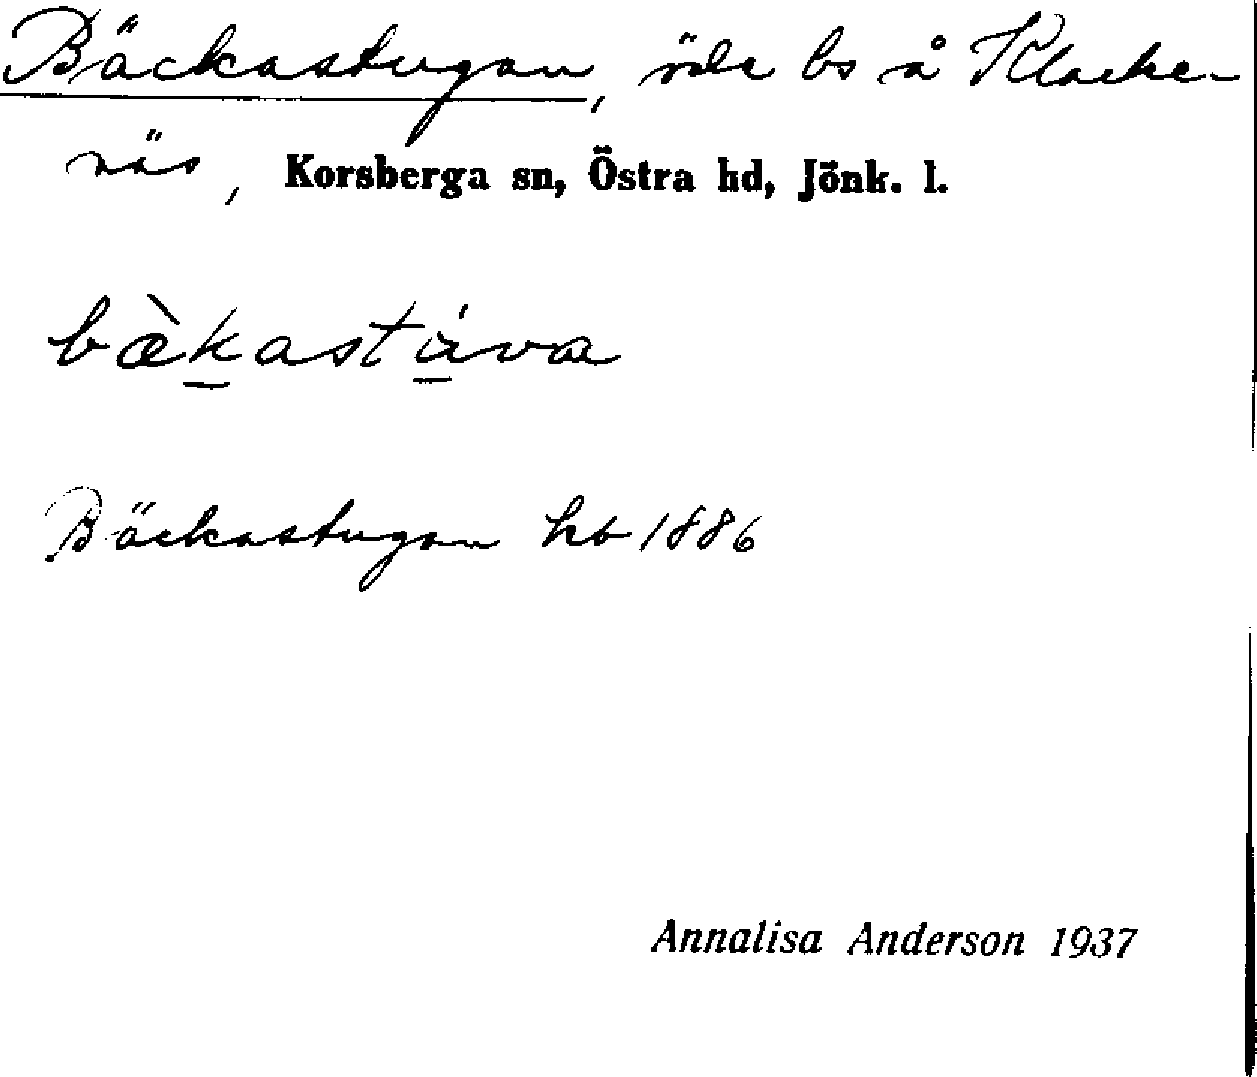 Bäckastugan, öde bs å Klacke-
näs, Korsberga sn, Östra hd, Jönk. l.
bæ̀k̲astú̲va
Bäckastugan hb 1886
Annalisa Anderson 1937